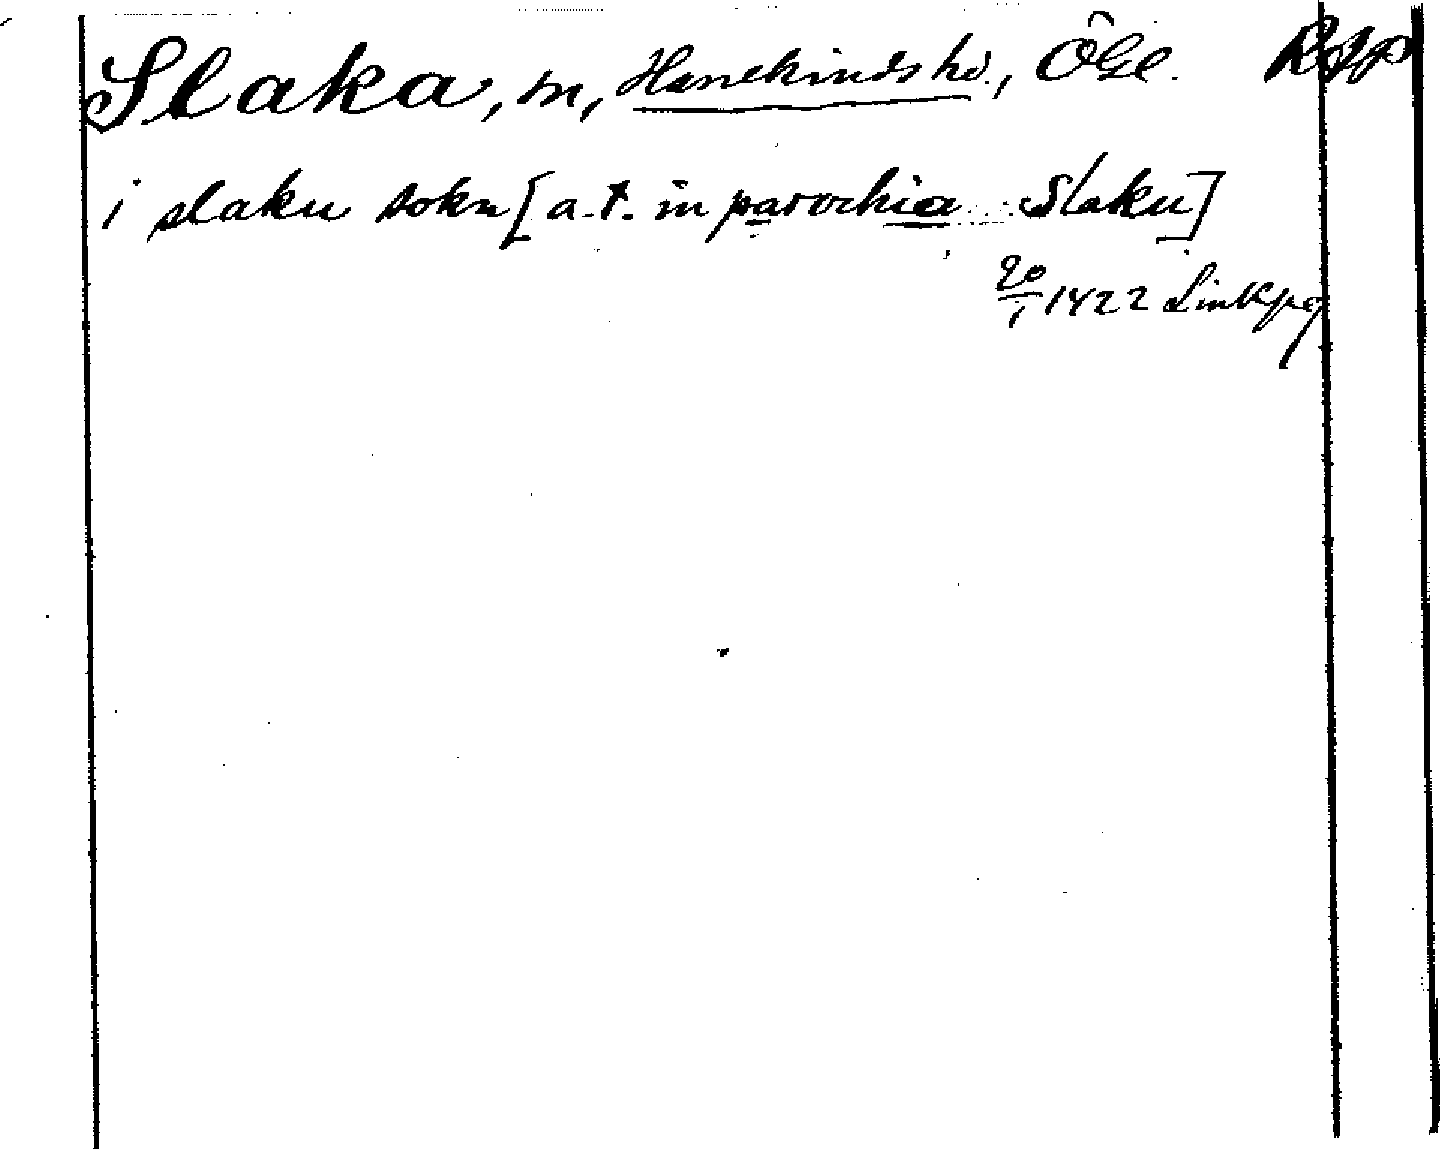 Slaka, sn, Hanekinds hd., Ögl. Rpp
i slaku sokn [a.t. in parochia Slaku]
20/1 1422 Linkpg